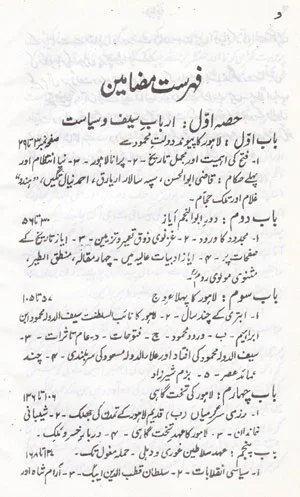 و
فہرست مضامین
حصہ اوّل: اربابِ سیف و سیاست
باب اوّل: لاہور کا پیوند دولتِ محمود سے صفحہ نمبر ۳ تا ۲۹
۱- فتح کی اہمیت اور مجمل تاریخ - ۲- پرانا لاہور - ۳- نیا انتظام اور
پہلے حکام: قاضی ابوالحسن، سپہ سالار اریارق، احمد نیال تگین، "ہندو"
غلام اور تلک حجام۔
باب دوم: دورِ ابوالنجم ایاز ۳۰ تا ۵۶
۱- مجدود کا ورود - ۲- غزنوی ذوق تعمیر و تزیین - ۳- ایاز تاریخ کے
صفحات پر - ۴- ایاز ادبیات عالیہ میں - چہار مقالہ، منطق الطیر،
مثنوی مولوی روم
باب سوم: لاہور کا پہلا عروج ۵۷ تا ۱۰۵
۱- ابتری کے چند سال - ۲- لاہور کا نائب السلطنت سیف الدولہ محمود ابن
ابراہیم - ب- ورود محمود - ج- فتوحات - د- عام تاثرات - ۳-
سیف الدولہ محمود کی افتاد اور علاء الدولہ مسعود کی سربلندی - ۴- چند
عمائد عصر - ۵- بزم شیرزاد
باب چہارم: لاہور کی تخت گاہی ۱۰۶ تا ۱۳۶
۱- رزمی سرگرمیاں (ب) قدیم لاہور کے تمدن کی جھلک - ۲- شیبانی
خاندان - ۳- لاہور کا عہد تخت گاہی - ۴- دربار خسرو ملک۔
باب پنجم: عہد سلاطین غوری و دہلی۔ حملہ مغول تک۔ ۱۳۷ تا ۱۶۸
۱- سیاسی انقلابات - ۲- سلطان قطب الدین ایبک - ۳- آرام شاہ اور